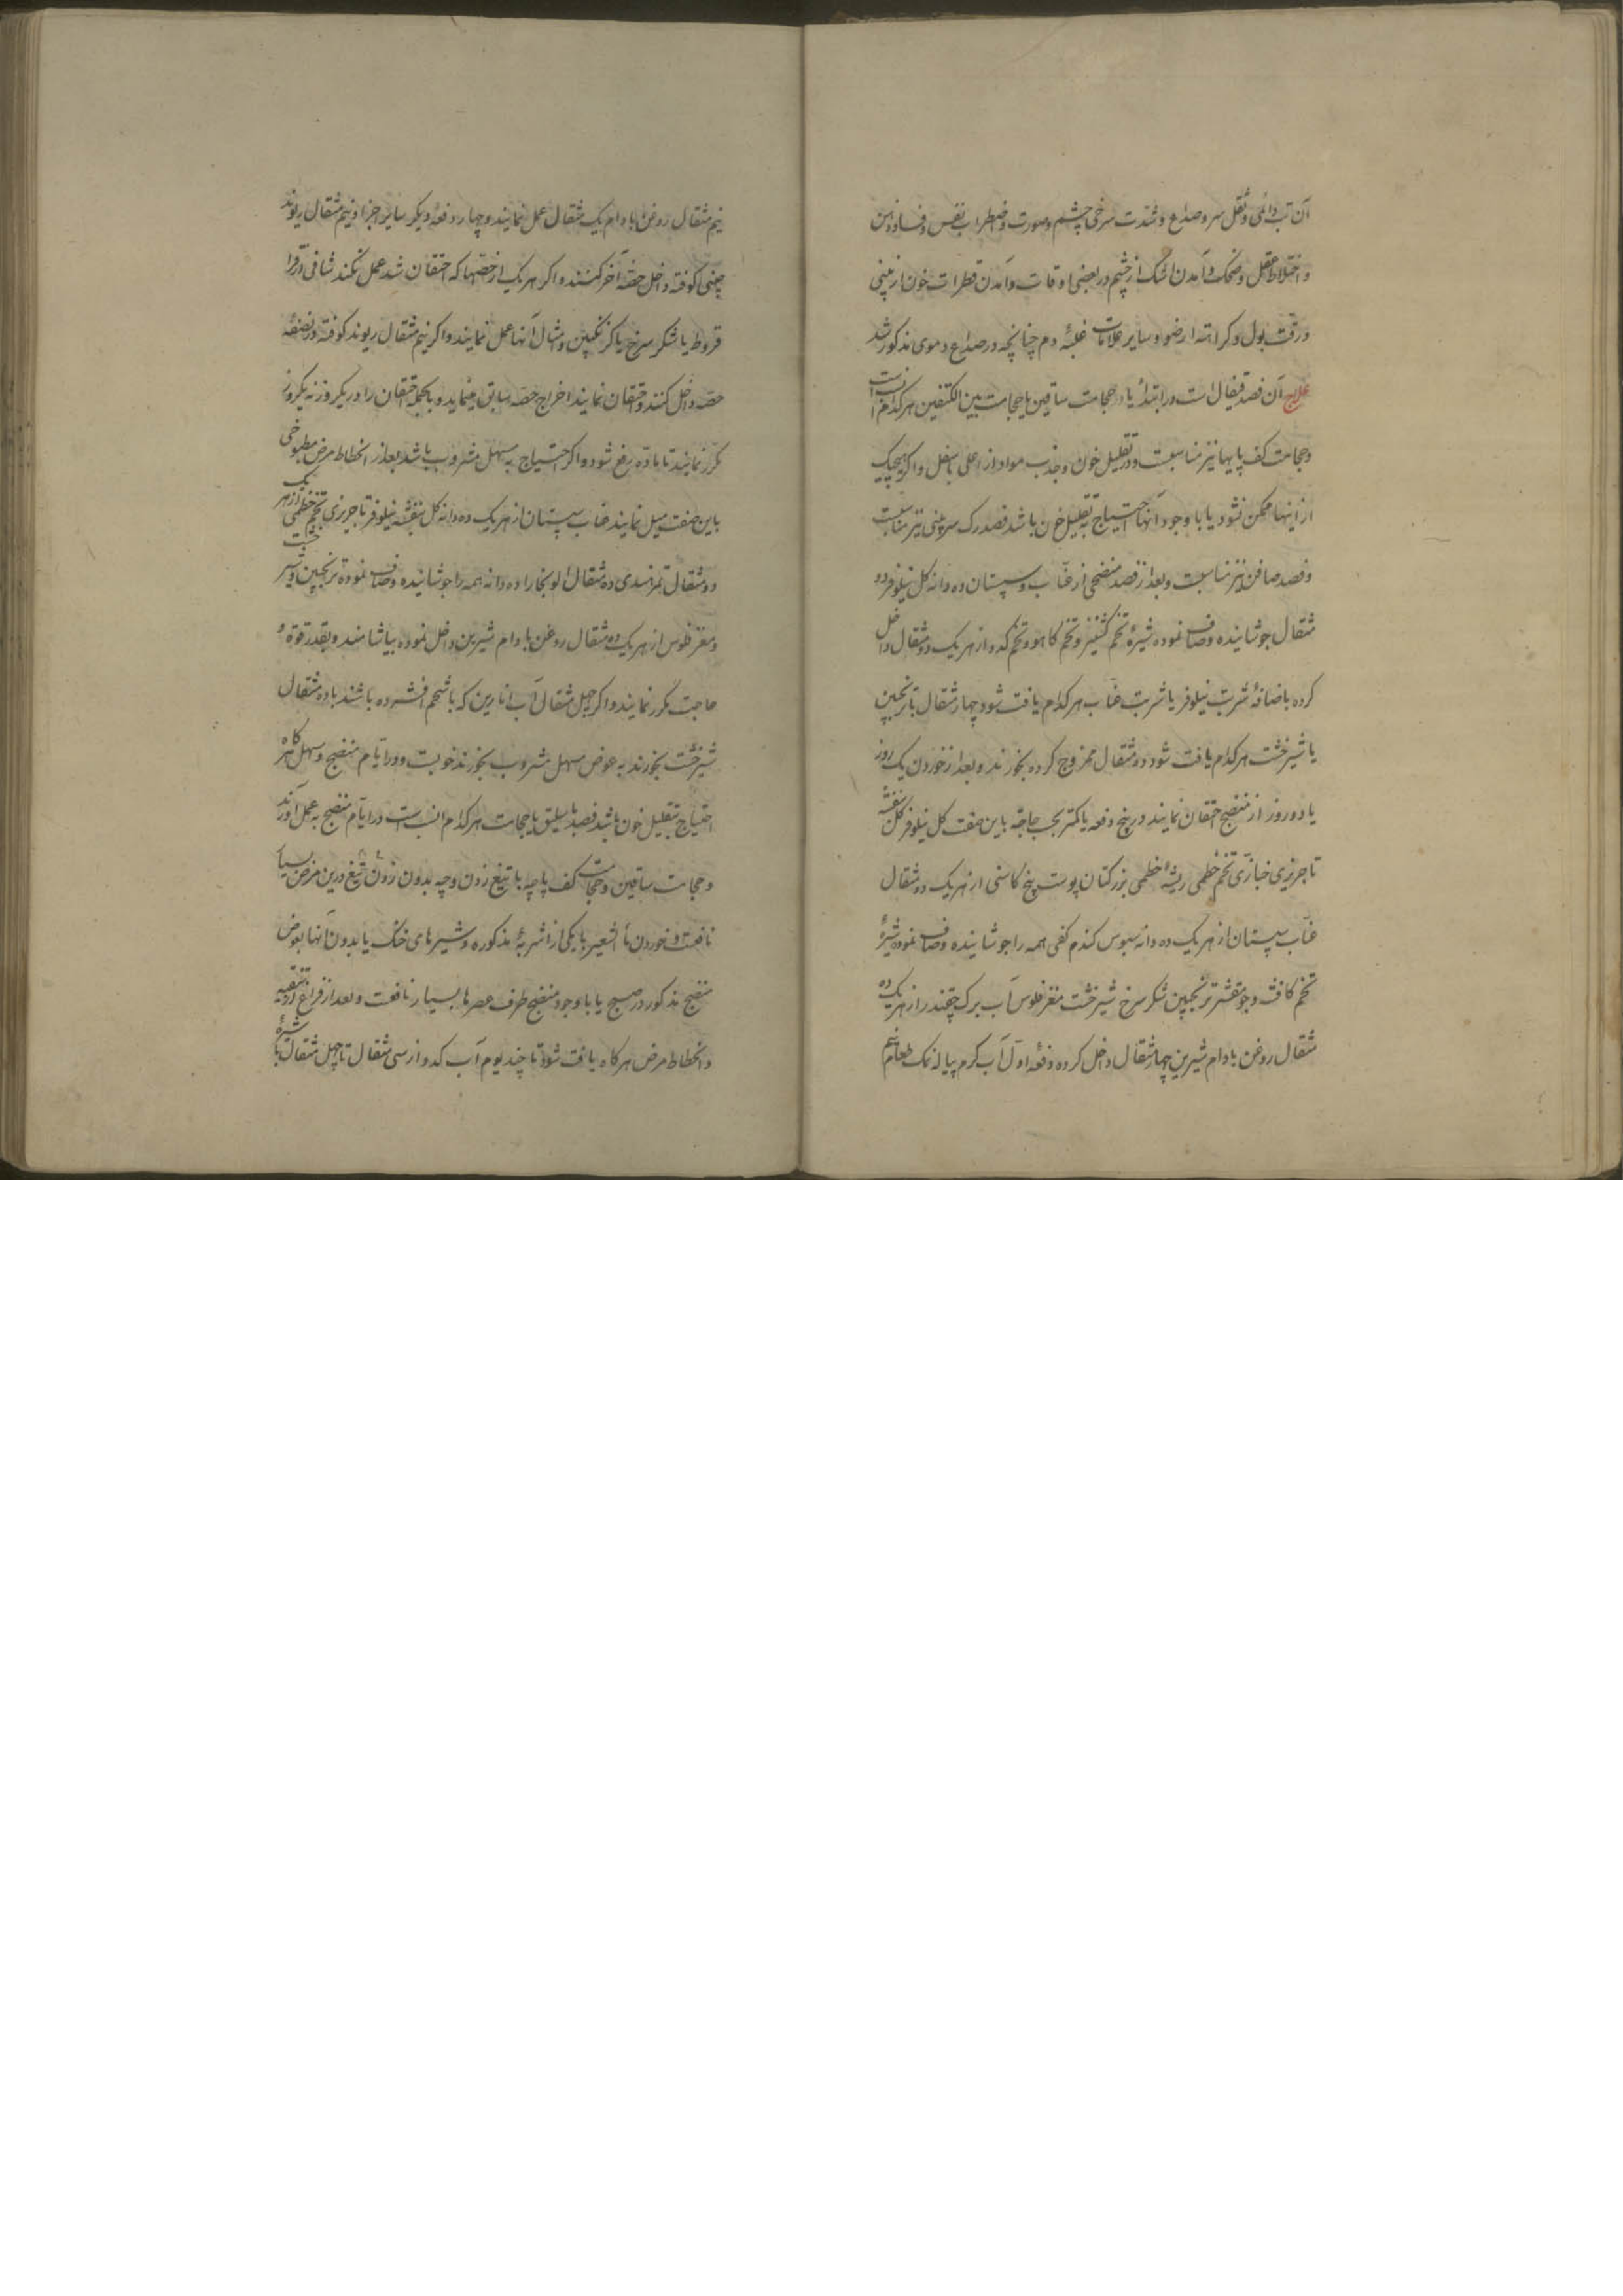 آن تب دائمی و ثقل سر و صداع و شدت سرخی چشم و صورت و اضطراب نفس و فساد ذهن
و اختلاط عقل و ضحک و آمدن اشک از چشم در بعضی اوقات و آمدن قطرات خون از بینی
و رقت بول و کراهة از ضو و سایر علامات غلبهٔ دم چنانچه در صداع دموی مذکور شد
علاج آن فصد قیفال است در ابتداء یا حجامت ساقین یا حجامت بین الکتفین هر کدام انسب است
و حجامت کف پایها نیز مناسبت و در تقلیل خون و جذب مواد از اعلی باسفل و اگر هیچیک
از اینها ممکن نشود یا با وجود آنها احتیاج به تقلیل خون باشد فصد رک سر بینی نیز مناسبت
و فصد صافن نیز مناسبت و بعد از فصد منضجی از عناب و سپستان ده دانه کل نیلوفر دو
مثقال جوشانیده و صاف نموده شیرهٔ تخم کشنیز و تخم کاهو و تخم کدو از هر یک دو مثقال داخل
کرده باضافهٔ شربت نیلوفر یا شربت عناب هر کدام یافت شود چهار مثقال با ترنجبین
یا شیرخشت هر کدام یافت شود ده مثقال ممزوج کرده بخورند و بعد از خوردن یک روز
یا دو روز از منضج احتقان نمایند در پنج دفعه یا کمتر بحسب حاجة باین صفت کل نیلوفر کل بنفشه
تاجریزی خبازی تخم خطمی ریشهٔ خطمی بزر کتان پوست بیخ کاسنی از هر یک دو مثقال
عناب سپستان از هر یک ده دانه سبوس کندم کفی همه را جوشانیده و صاف نموده شیرهٔ
تخم کافشه و جو مقشر ترنجبین شکر سرخ شیرخشت مغز فلوس آب برک چقندر از هر یک ده
مثقال روغن بادام شیرین چهار مثقال داخل کرده دفعهٔ اول آب کرم پیاله نمک طعام نیم
نیم مثقال روغن بادام یک مثقال عمل نمایند و چهار دفعهٔ دیگر سایر اجزا و نیم مثقال ریوند
چینی کوفته داخل حقنهٔ آخر کنند و اکر هر یک از حقنها که احتقان شد عمل نکند شافی از
قروط یا شکر سرخ یا کزنکبین و مثال آنها عمل نمایند و اکر نیم مثقال ریوند کوفته در نصفهٔ
حقنه داخل کنند و احتقان نمایند اخراج حقنه سابق مینماید و بالجمله احتقان را در یکروز نه یکروز
مکرر نمایند تا ماده رفع شود و اکر احتیاج به مسهل مشروب باشد بعد از انحطاط مرض مطبوخی
باین صفت میل نمایند عناب سپستان از هر یک ده دانه کل بنفشه نیلوفر تاجریزی تخم خطمی از هر یک
دو مثقال تمر هندی ده مثقال آلو بخارا ده دانه همه را جوشانیده و صاف نموده ترنجبین و شیرخشت
و مغز فلوس از هر یک ده مثقال روغن بادام شیرین داخل نموده بیاشامند و بقدر قوة و
حاجت مکرر نمایند و اکر چهل مثقال آب انارین که با شحم افشرده باشند با ده مثقال
شیرخشت بخورند به عوض مسهل مشروب بخورند خوبست و در ایام منضج و مسهل هر کاه
احتیاج بتقلیل خون باشد فصد باسلیق یا حجامت هر کدام انسب است در ایام منضج به عمل آورند
و حجامت ساقین و حجامت کف پا چه با تیغ زدن و چه بدون زدن تیغ درین مرض بسیار
نافعست و خوردن ماء الشعیر با یکی از اشربهٔ مذکوره و شیرهای خنک یا بدون آنها بعوض
منضج مذکور در صبح یا با وجود منضج طرف عصرها بسیار نافعست و بعد از فراغ از تنقیه
و انحطاط مرض هر کاه یافت شود تا چند یوم آب کدو از سی مثقال تا چهل مثقال با شیرهٔ